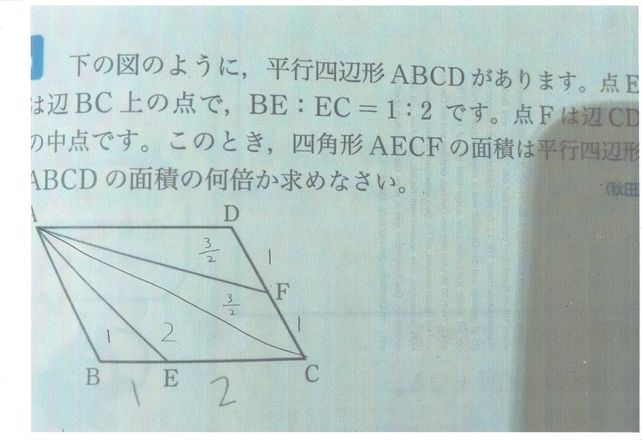 下の図のように，平行四辺形ABCDがあります。点E
は辺BC上の点で，BE：EC＝1：2です。点Fは辺CD
の中点です。このとき，四角形AECFの面積は平行四辺形
ABCDの面積の何倍か求めなさい。
(秋田
A D
3/2 1
F
3/2
1 2 1
B E C
1 2